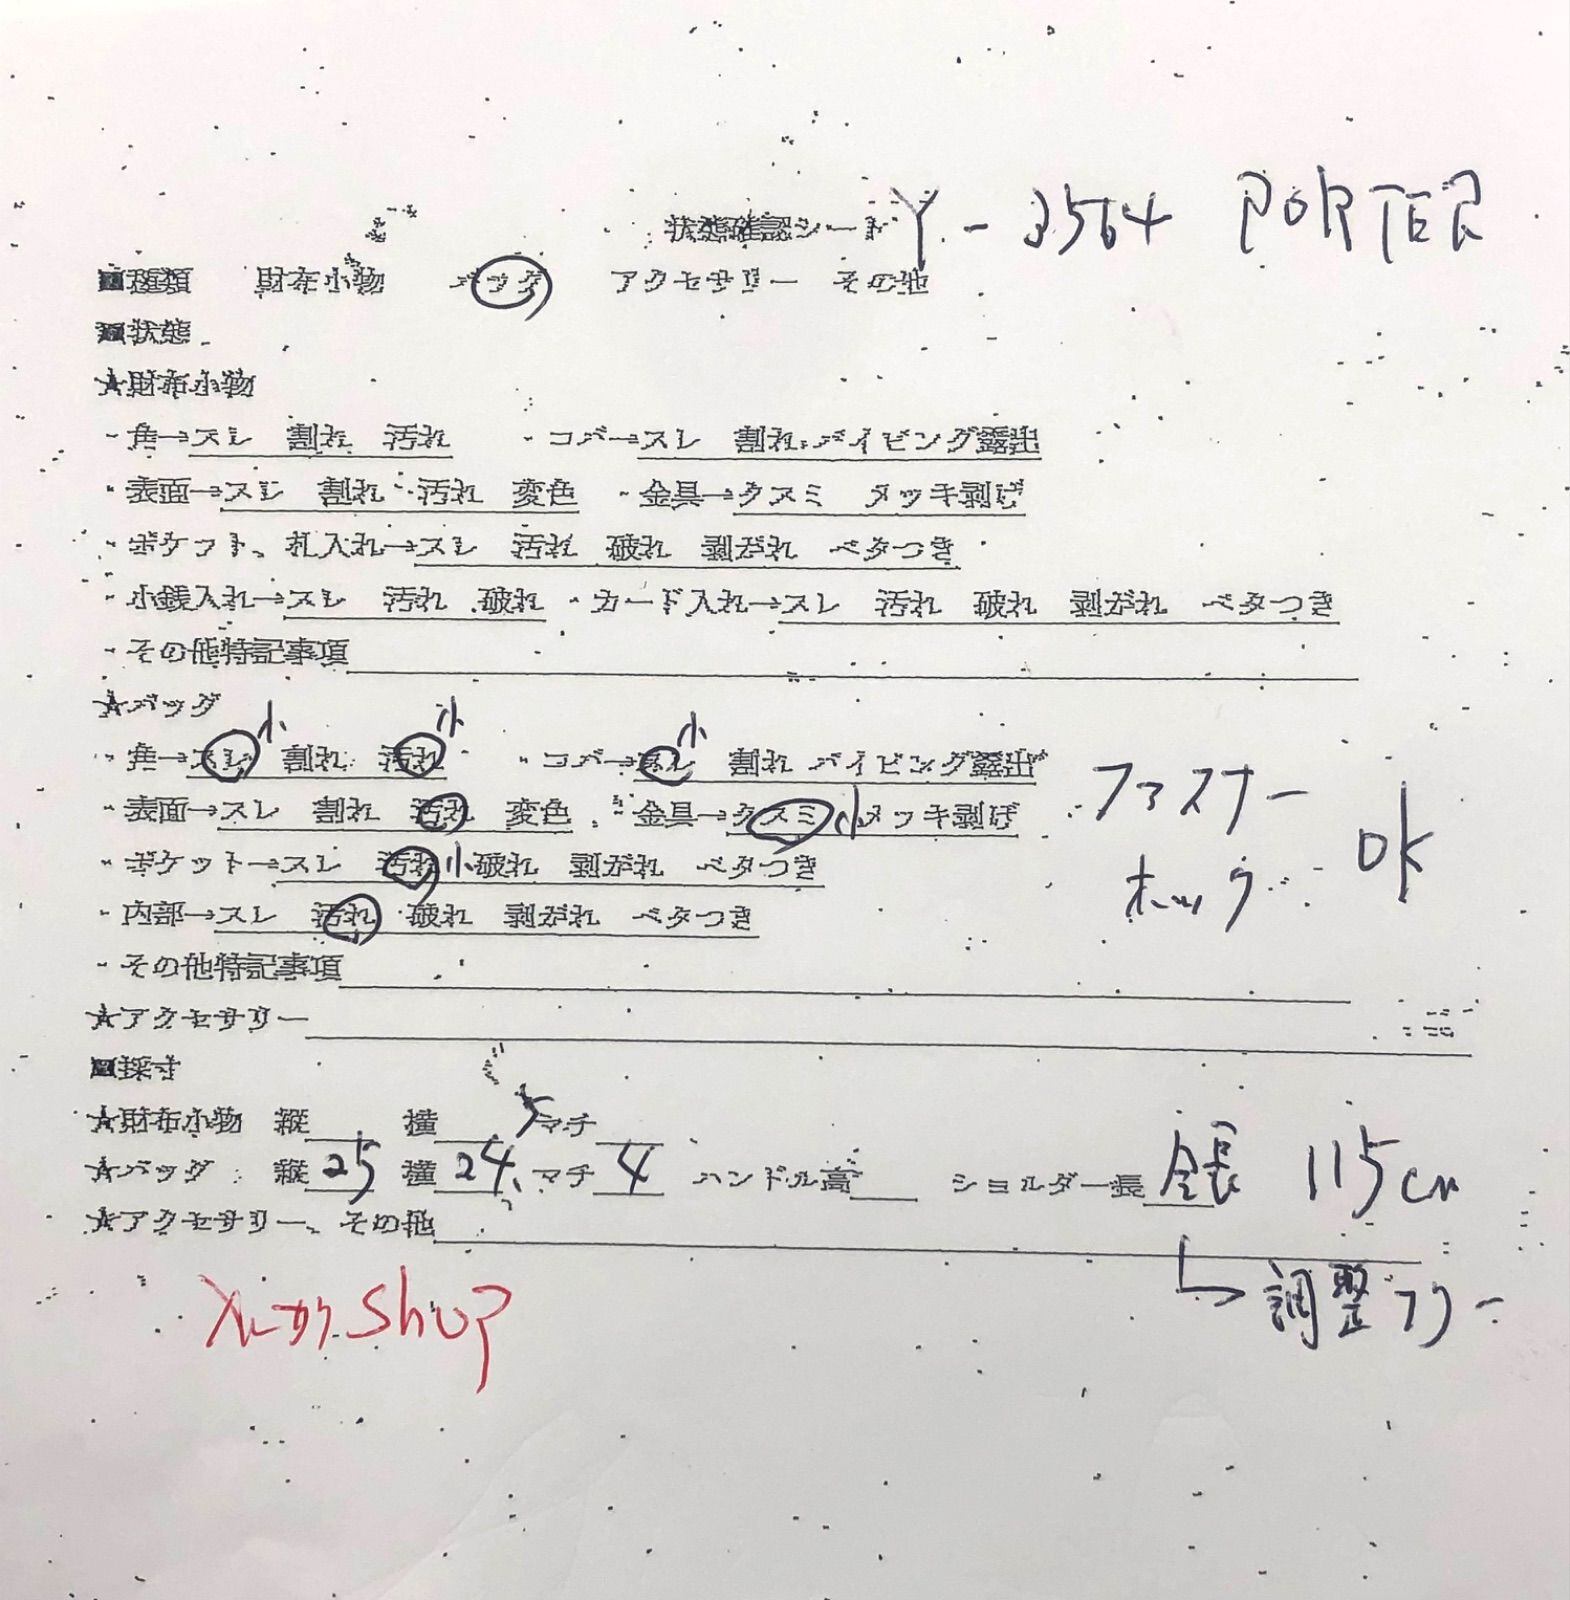 状態確認シート Y-3564 PORTER
■種類 財布小物 バッグ アクセサリー その他
■状態
★財布小物
・角→スレ 割れ 汚れ ・コバ→スレ 割れ パイピング露出
・表面→スレ 割れ 汚れ 変色 ・金具→クスミ メッキ剥げ
・ポケット、札入れ→スレ 汚れ 破れ 剥がれ ベタつき
・小銭入れ→スレ 汚れ 破れ ・カード入れ→スレ 汚れ 破れ 剥がれ ベタつき
・その他特記事項
★バッグ
・角→スレ 小 割れ 汚れ 小 ・コバ→スレ 小 割れ パイピング露出
・表面→スレ 割れ 汚れ 変色 ・金具→クスミ 小 メッキ剥げ
ファスナー
・ポケット→スレ 汚れ 小 破れ 剥がれ ベタつき
ホック OK
・内部→スレ 汚れ 破れ 剥がれ ベタつき
・その他特記事項
★アクセサリー
■採寸
★財布小物 縦 横 マチ
★バッグ 縦 25 横 24.5 マチ 4 ハンドル高 ショルダー長 全長 115cm
★アクセサリー、その他
→調整フリー
メルカリShop